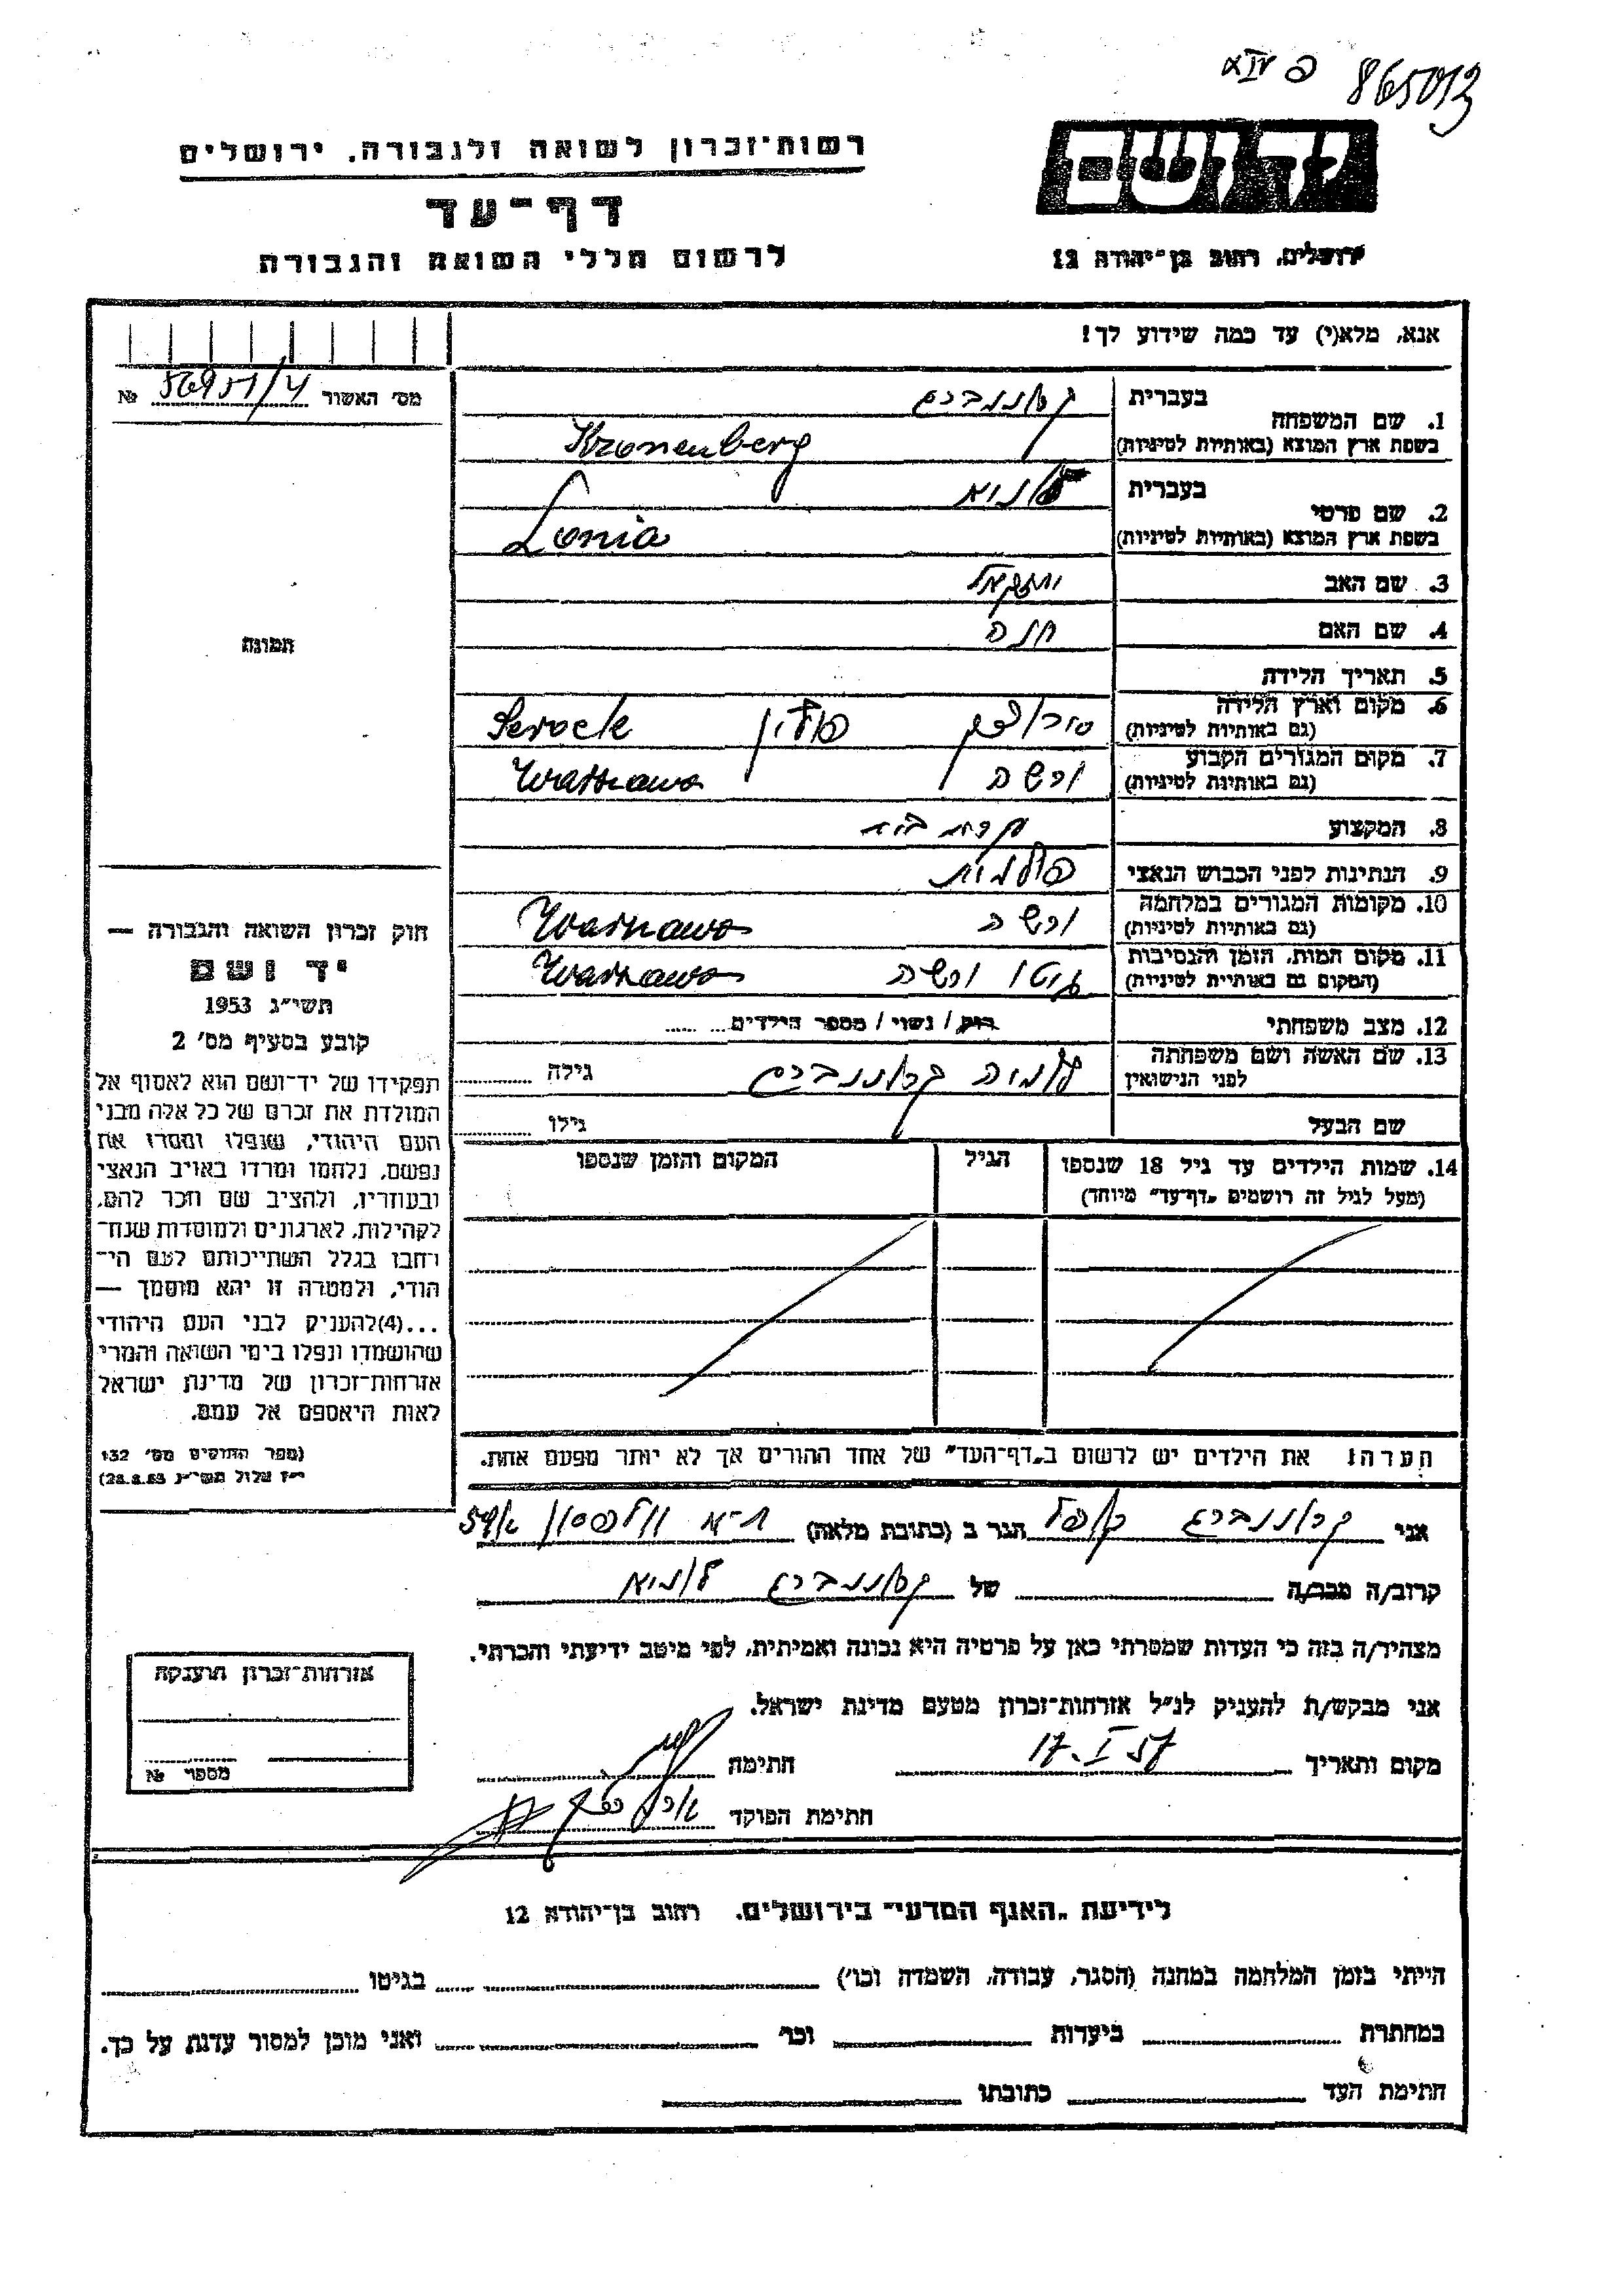 865013
רשות־זכרון לשואה ולגבורה, ירושלים
דף־עד
לרשום חללי השואה והגבורה
יד ושם
ירושלים, רחוב בן־יהודה 12
אנא, מלא(י) עד כמה שידוע לך!
מס׳ האשור 56951/4 №
תמונה
חוק זכרון השואה והגבורה —
יד ושם
תשי״ג 1953
קובע בסעיף מס׳ 2
תפקידו של יד־ושם הוא לאסוף אל
המולדת את זכרם של כל אלה מבני
העם היהודי, שנפלו ומסרו את
נפשם, נלחמו ומרדו באויב הנאצי
ובעוזריו, ולהציב שם וזכר להם,
לקהילות, לארגונים ולמוסדות שנח־
רבו בגלל השתייכותם לעם הי־
הודי, ולמטרה זו יהא מוסמך —
...(4)להעניק לבני העם היהודי
שהושמדו ונפלו בימי השואה והמרי
אזרחות־זכרון של מדינת ישראל
לאות היאספם אל עמם.
(ספר החוקים מס׳ 132
י״ז אלול תשי״ג 28.8.53)
1. שם המשפחה בעברית קרוננברג
בשפת ארץ המוצא (באותיות לטיניות) Kronenberg
2. שם פרטי בעברית לוניא
בשפת ארץ המוצא (באותיות לטיניות) Lonia
3. שם האב יחזקאל
4. שם האם חנה
5. תאריך הלידה
6. מקום וארץ הלידה (גם באותיות לטיניות) סרוצק פולין Serock
7. מקום המגורים הקבוע (גם באותיות לטיניות) ורשה Warszawa
8. המקצוע עקרת בית
9. הנתינות לפני הכבוש הנאצי פולנית
10. מקומות המגורים במלחמה (גם באותיות לטיניות) ורשה Warszawa
11. מקום המות, הזמן והנסיבות (המקום גם באותיות לטיניות) גיטו ורשה Warszawa
12. מצב משפחתי רוק / נשוי / מספר הילדים
13. שם האשה ושם משפחתה לפני הנישואין קרוננברג גילה
שם הבעל גילו
14. שמות הילדים עד גיל 18 שנספו הגיל המקום והזמן שנספו
(מעל לגיל זה רושמים „דף־עד״ מיוחד)
הערה: את הילדים יש לרשום ב„דף־העד״ של אחד ההורים אך לא יותר מפעם אחת.
אני קרוננברג קופל הגר ב (כתובת מלאה) ת־א וולפסון 59
קרוב/ה מכר/ה של קרוננברג לוניא
מצהיר/ה בזה כי העדות שמסרתי כאן על פרטיה היא נכונה ואמיתית, לפי מיטב ידיעתי והכרתי.
אני מבקש/ת להעניק לנ״ל אזרחות־זכרון מטעם מדינת ישראל.
מקום ותאריך 17.I 57 חתימה
חתימת הפוקד
אזרחות־זכרון הוענקה
מספר №
לידיעת „האגף המדעי״ בירושלים, רחוב בן־יהודה 12
הייתי בזמן המלחמה במחנה (הסגר, עבודה, השמדה וכו׳) בגיטו
במחתרת ביערות וכו׳ ואני מוכן למסור עדות על כך.
חתימת העד כתובתו